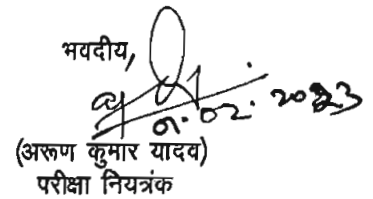 भवदीय,
01.02.2023
(अरूण कुमार यादव)
परीक्षा नियत्रंक